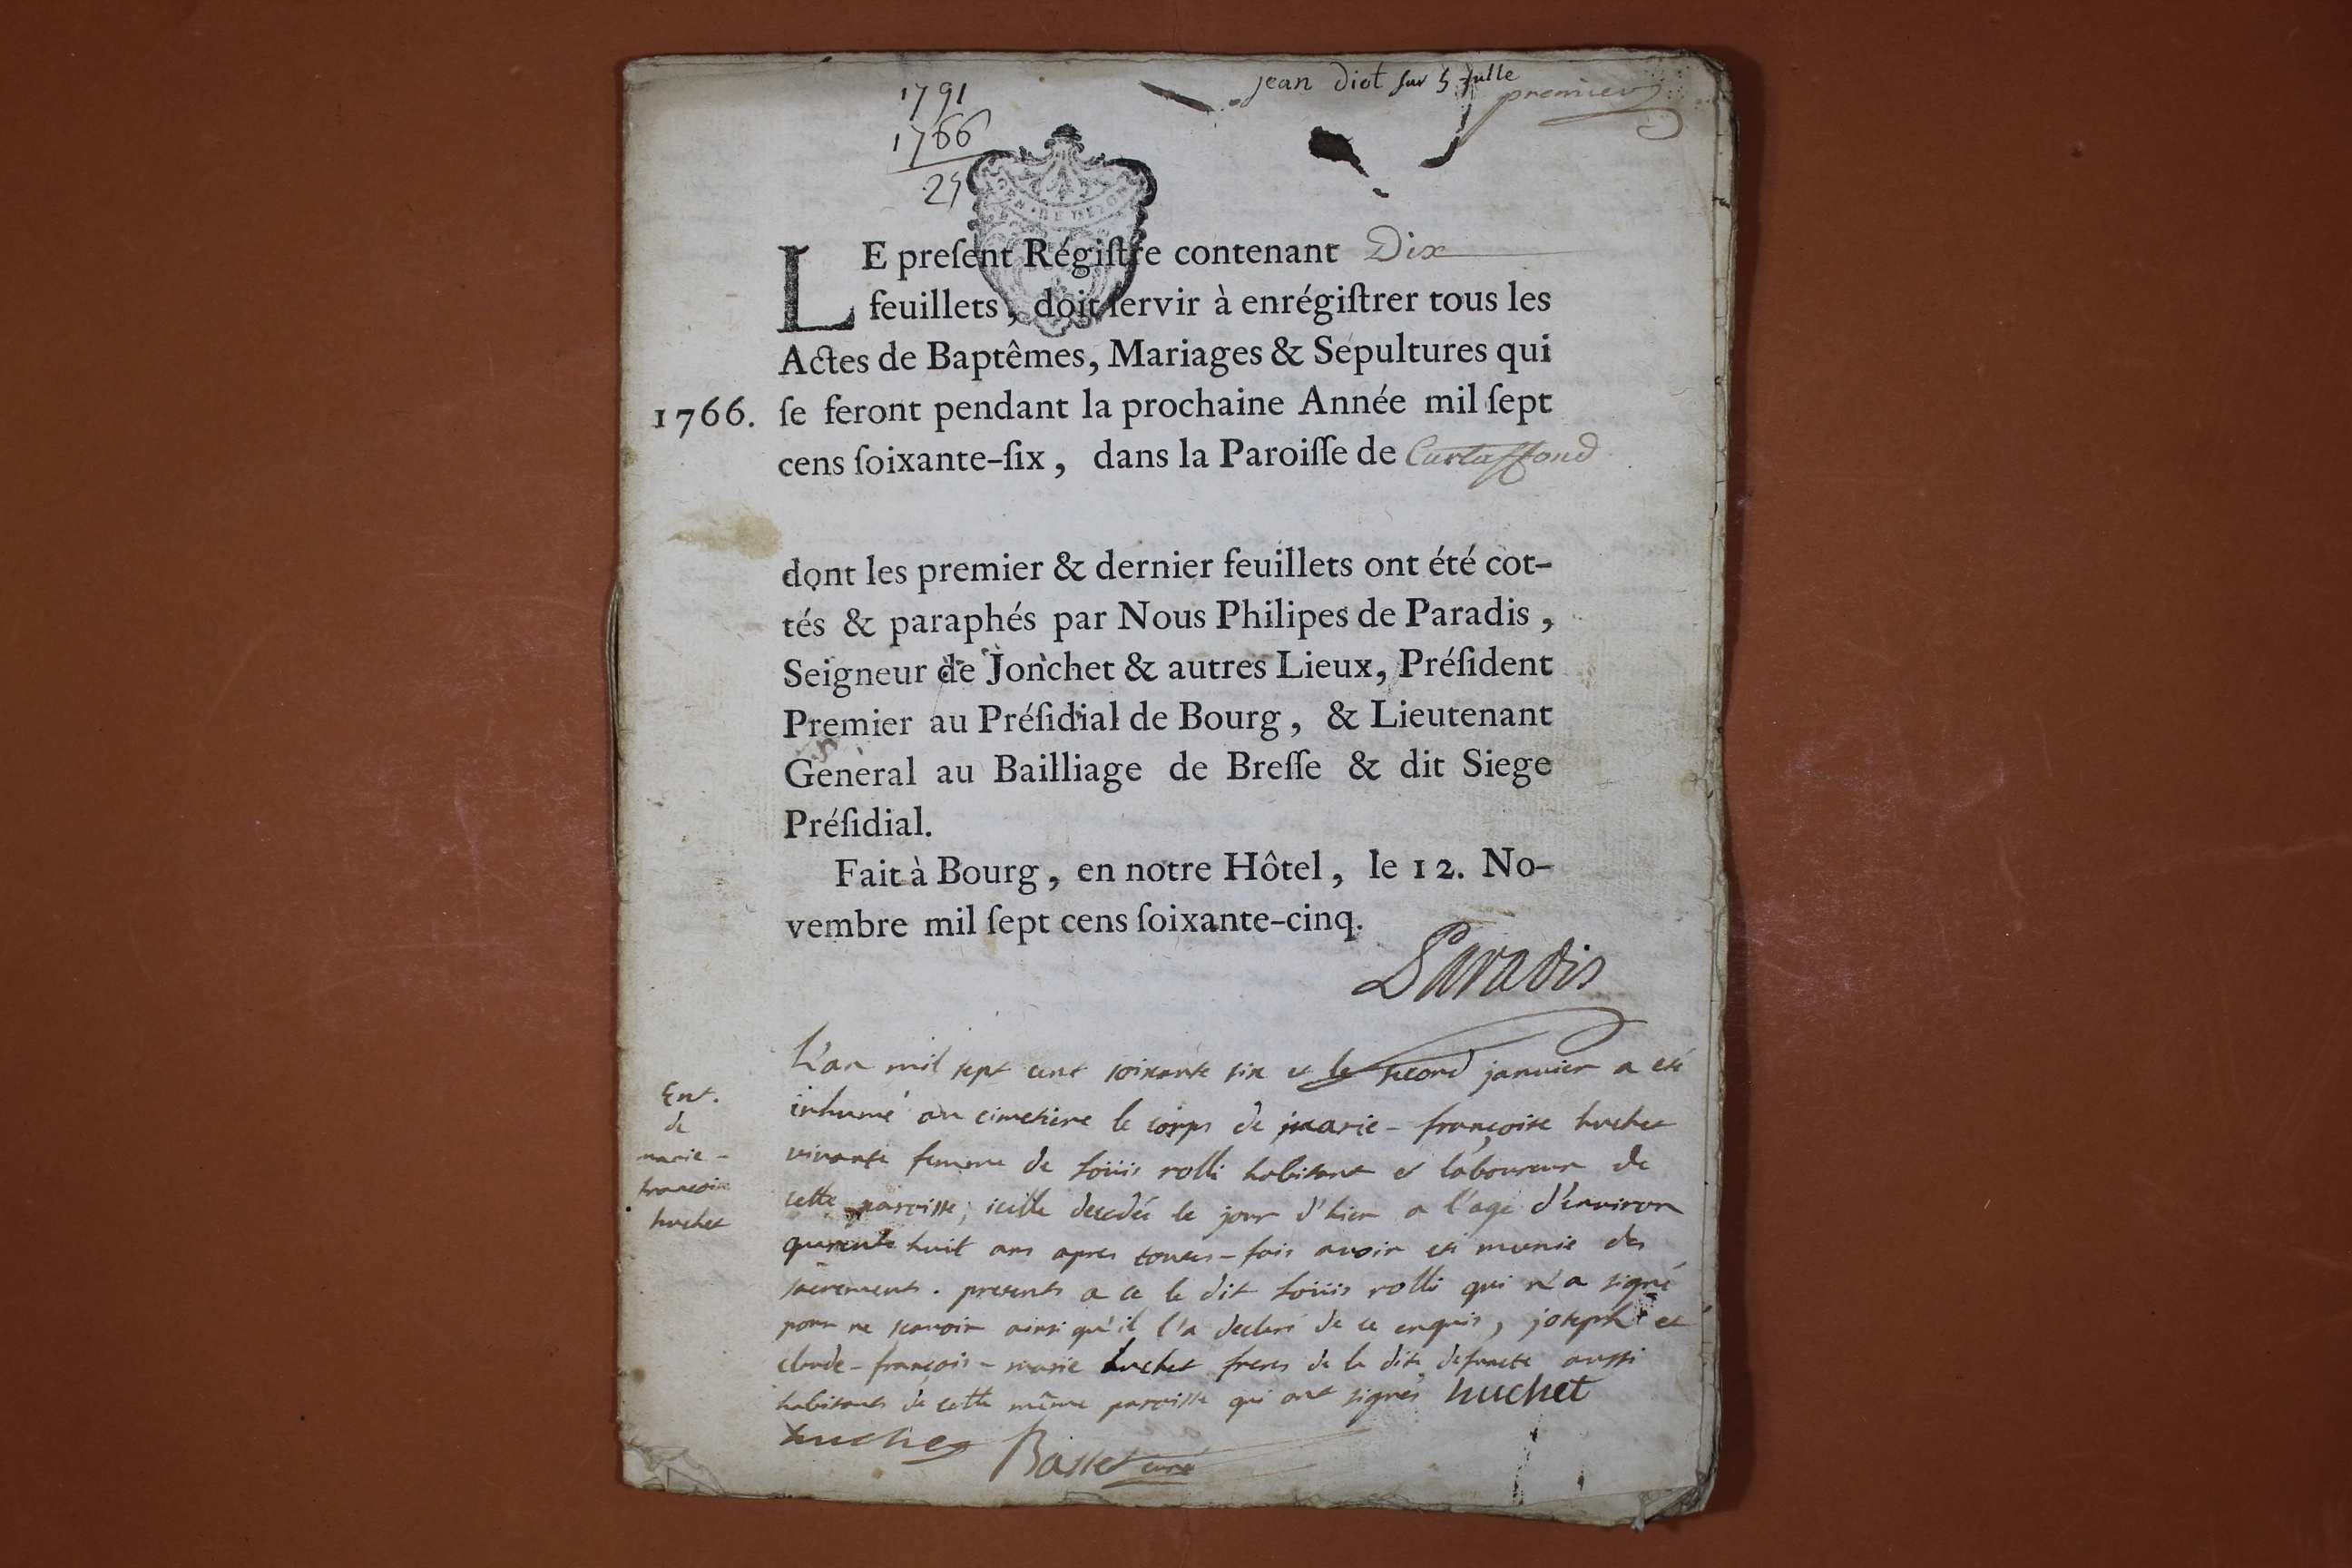 1791
1766
25
jean diot sur 5 julle
premier
GEN. DE DIJON
LE preſent Régiſtre contenant Dix
feuillets, doit ſervir à enrégiſtrer tous les
Actes de Baptêmes, Mariages & Sépultures qui
1766. ſe feront pendant la prochaine Année mil ſept
cens ſoixante-ſix, dans la Paroiſſe de Curtaffond
dont les premier & dernier feuillets ont été cot-
tés & paraphés par Nous Philipes de Paradis,
Seigneur de Jonchet & autres Lieux, Préſident
Premier au Préſidial de Bourg, & Lieutenant
General au Bailliage de Breſſe & dit Siege
Préſidial.
Fait à Bourg, en notre Hôtel, le 12. No-
vembre mil ſept cens ſoixante-cinq.
Paradis
Ent.
de
marie-
françoise
huchet
L'an mil sept cent soixante six et le second janvier a eté
inhumé au cimetiere le corps de marie-françoise huchet
vivante femme de loüis rolli habitant et laboureur de
cette paroisse; icelle decedée le jour d'hier a l'age d'environ
quarente huit ans apres toutes-fois avoir eté munie des
sacrements. presents a ce le dit loüis rolli qui n'a signé
pour ne scavoir ainsi qu'il l'a declaré de ce enquis, joseph et
claude-françois-marie huchet freres de la dite defuncte aussi
habitants de cette même paroisse qui ont signés huchet
huchet Basset curé